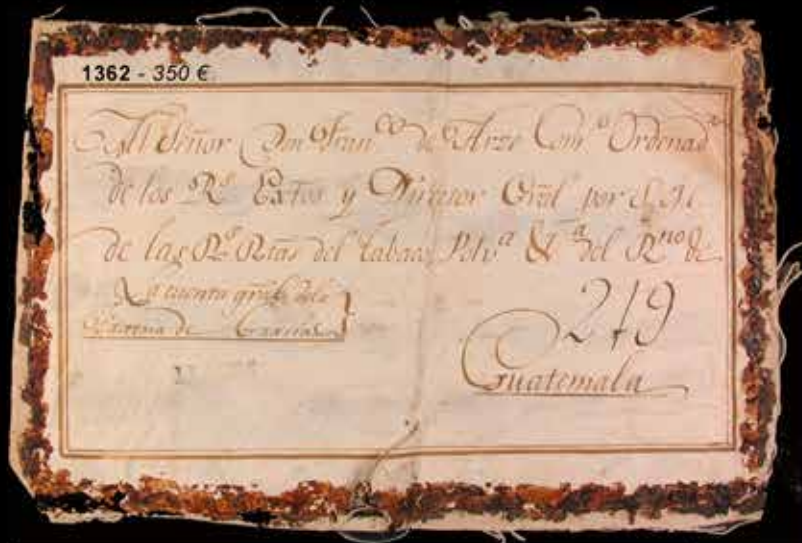 1362 - 350 €
Al Señor Don Fran.co de Arze Com.o Ordenad.r
de los R.s Extos y Director Grãl por S. M.
de las R.s Rtas del tabaco, Polv.a & a del R.no de
La cuenta grãl de la
de Gracias
219
Guatemala